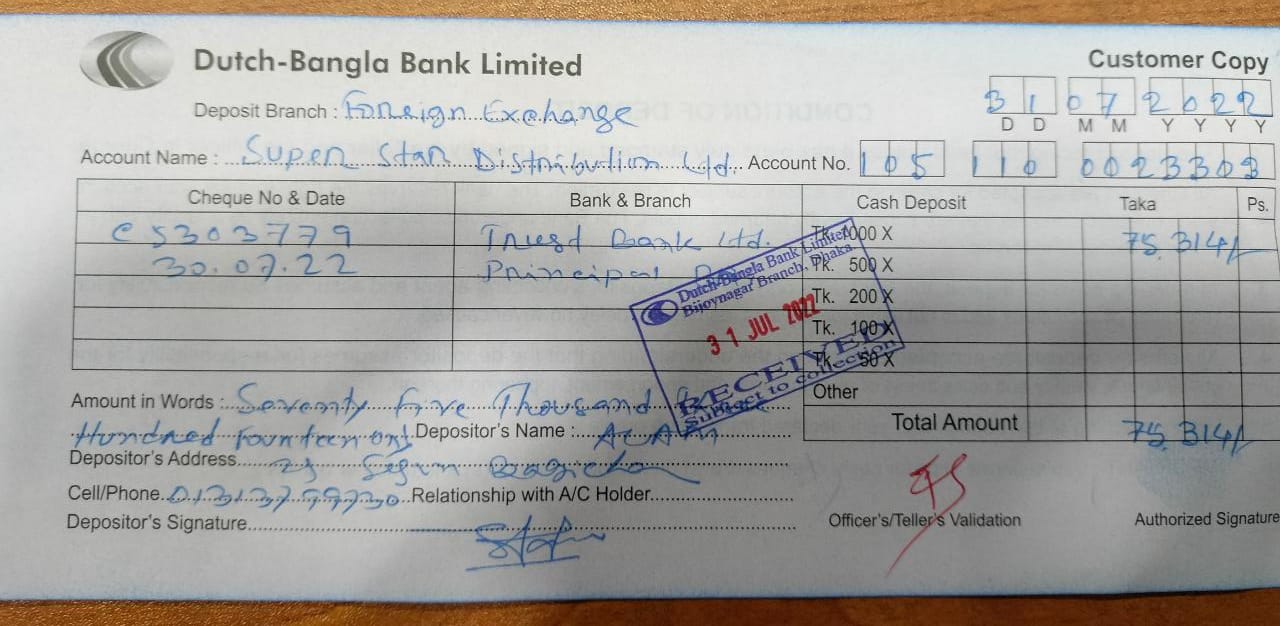 Dutch-Bangla Bank Limited
Customer Copy
Deposit Branch : Foreign Exchange
31 07 2022
D D M M Y Y Y Y
Account Name : Super Star Distribution Ltd. Account No. 105 110 0023303
Cheque No & Date Bank & Branch Cash Deposit Taka Ps.
C 5303779 Trust Bank Ltd. Tk. 1000 X 75,314/-
30.07.22 Principal Tk. 500 X
Tk. 200 X
Tk. 100 X
Tk. 50 X
Dutch-Bangla Bank Limited
Bijoynagar Branch, Dhaka
31 JUL 2022
RECEIVED
Subject to collection
Other
Amount in Words : Seventy Five Thousand
Total Amount 75,314/-
Hundred Fourteen only Depositor's Name : ALAM
Depositor's Address Segun Bagicha
Cell/Phone 01313799730 Relationship with A/C Holder
Depositor's Signature
Officer's/Teller's Validation
Authorized Signature